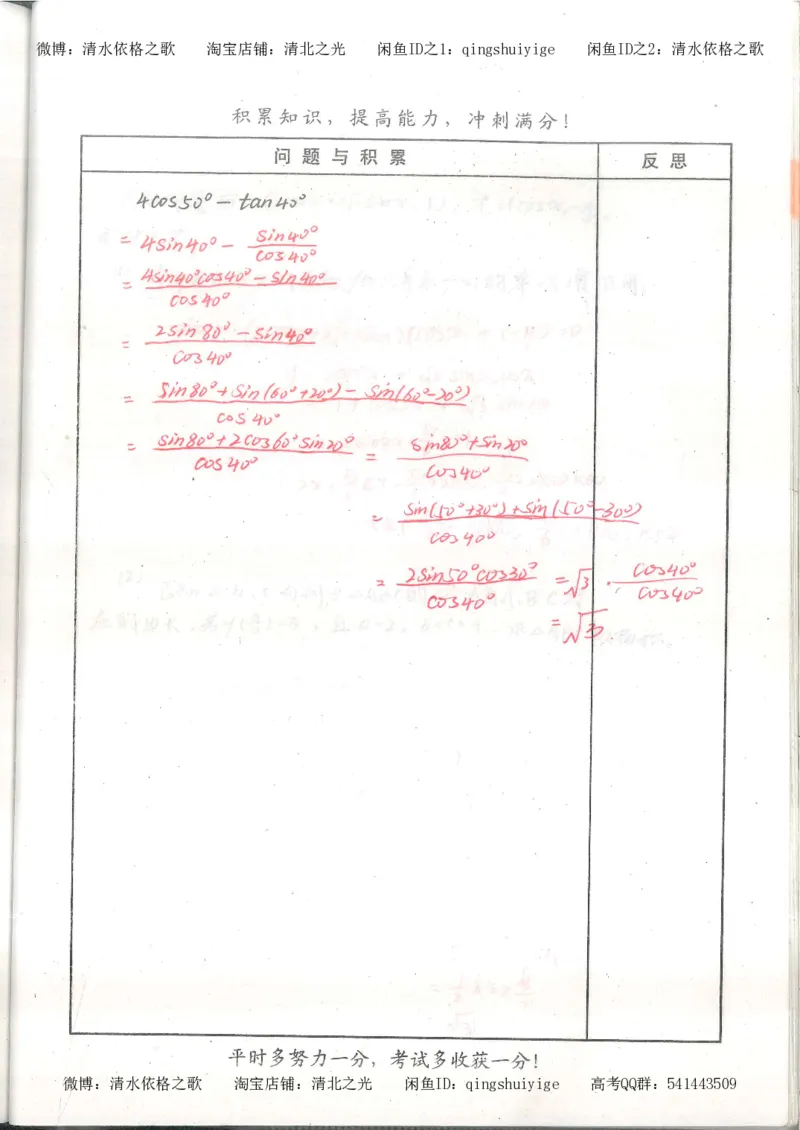 微博：清水依格之歌 淘宝店铺：清北之光 闲鱼ID之1：qingshuiyige 闲鱼ID之2：清水依格之歌
积累知识，提高能力，冲刺满分！
问题与积累 反思
4cos50° - tan40°
= 4sin40° - sin40°/cos40°
= (4sin40°cos40° - sin40°)/cos40°
= (2sin80° - sin40°)/cos40°
= (sin80° + sin(60°+20°) - sin(60°-20°))/cos40°
= (sin80° + 2cos60°sin20°)/cos40° = (sin80° + sin20°)/cos40°
= (sin(50°+30°) + sin(50°-30°))/cos40°
= 2sin50°cos30°/cos40° = √3 · cos40°/cos40°
= √3
平时多努力一分，考试多收获一分！
微博：清水依格之歌 淘宝店铺：清北之光 闲鱼ID：qingshuiyige 高考QQ群：541443509